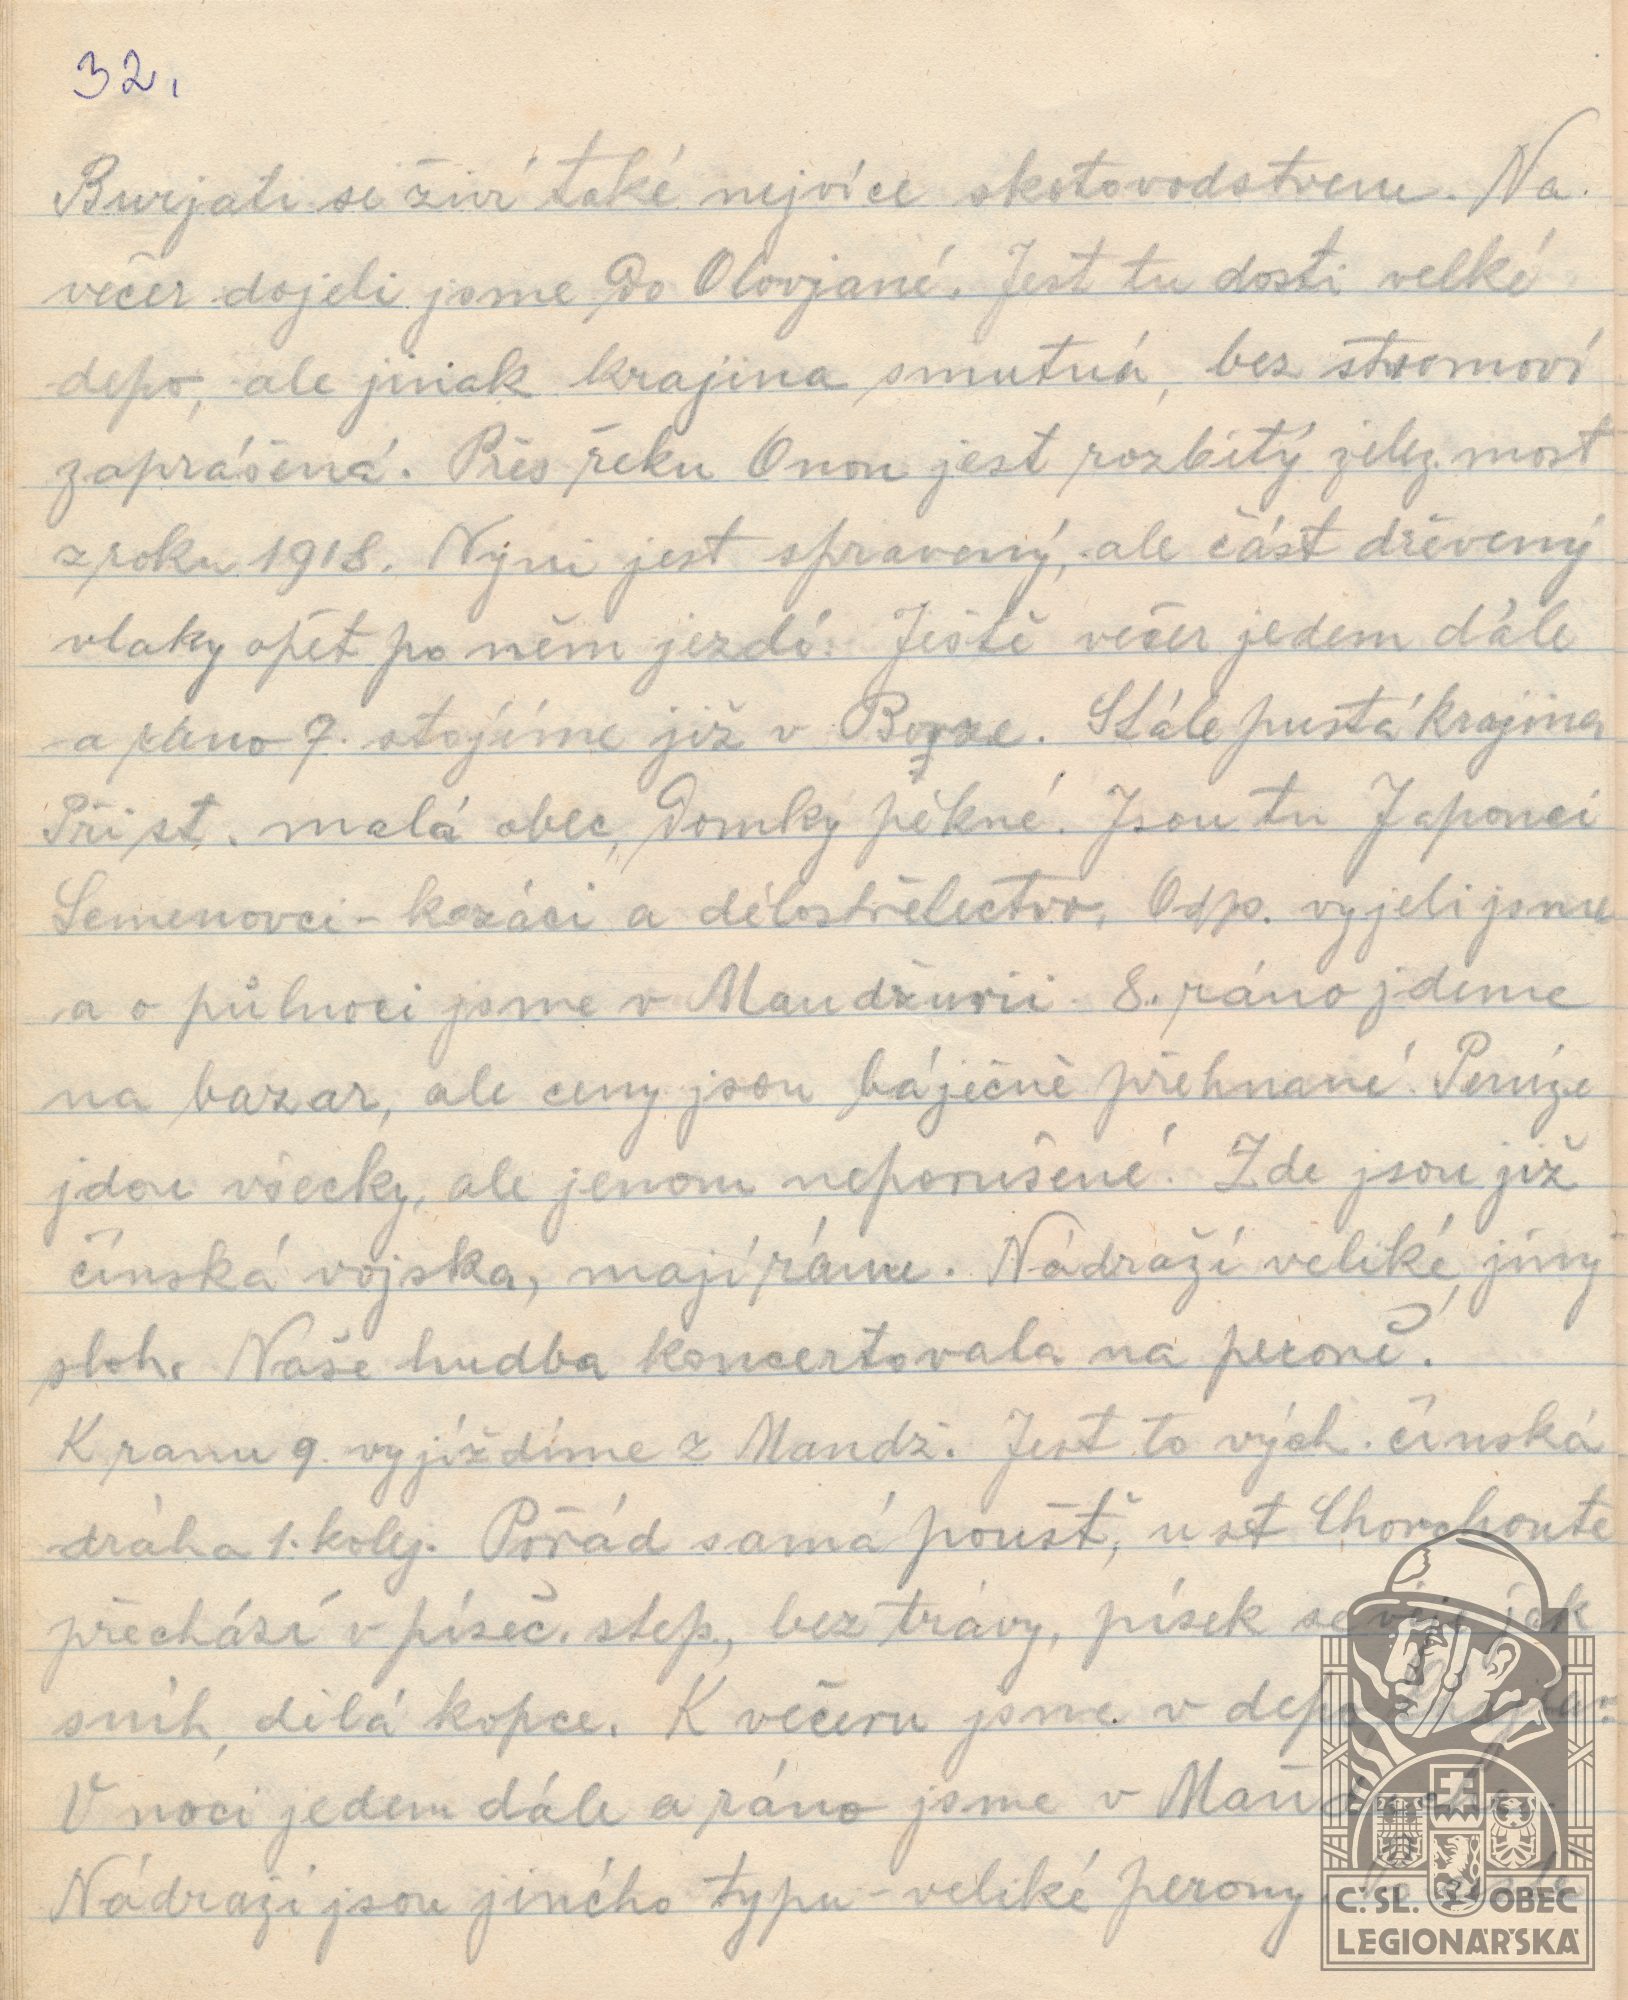 32.
Burjati se živí také nejvíce skotovodstvem. Na
večer dojeli jsme do Olovjané. Jest tu dosti velké
depo, ale jinak krajina smutná, bez stromoví
zaprášená. Přes řeku Onon jest rozbitý želez. most
z roku 1918. Nyni jest spravený, ale část dřevený
vlaky opět po něm jezdí. Ještě večer jedem dále
a ráno 7. stojíme již v Borze. Stále pustá krajina
Při st. malá obec, domky pěkné. Jsou tu Japonci
Semenovci - kozáci a dělostřelectvo. Odp. vyjeli jsme
a o půlnoci jsme v Mandžurii. 8. ráno jdeme
na bazar, ale ceny jsou báječně přehnané. Peníze
jdou všecky, ale jenom neporušené. Zde jsou již
čínská vojska, mají
Nádraží veliké, jiný
sloh. Naše hudba koncertovala na peroně.
K ranu 9. vyjíždíme z Mandž. Jest to vých. čínská
dráha 1. kolej. Pořád samá poušť, u st Chorchonte
přechází v píseč. step, bez trávy, písek se věje jak
sníh, dělá kopce. K večeru jsme v depo
V noci jedem dále a ráno jsme v
Nádraží jsou jiného typu - veliké perony
Č. SL. OBEC
LEGIONÁŘSKÁ